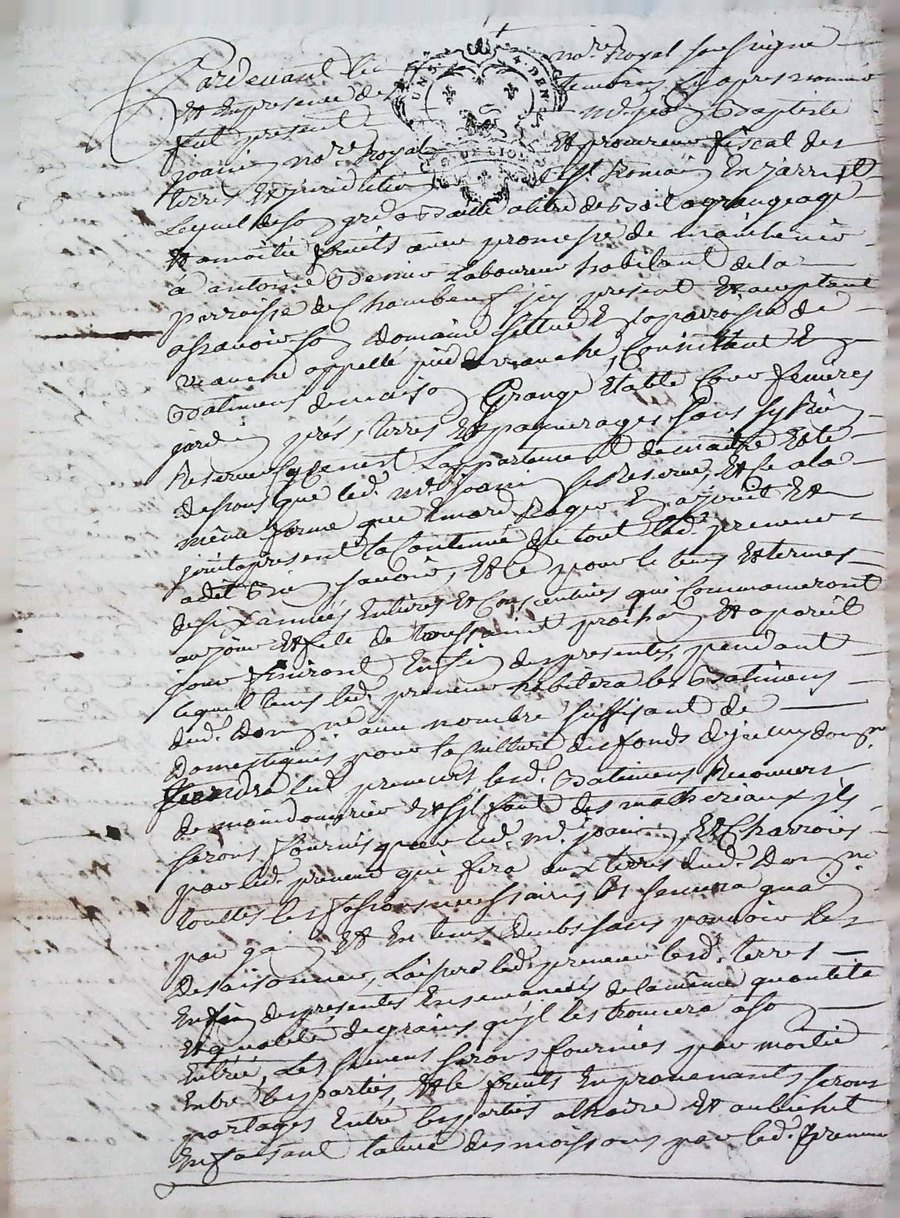 Pardevant le no.re Royal soussigne
Et En presence des temoins cy apres nommés
fut present M.e jean Baptiste
joanin no.re Royal Et procureur fiscal des
terres Et juridiction St Romain En jarrest
Lequel de son gré a Baillé a titre de Bail a grangeage
Et a moitié fruits avec promesse de maintenir
a antoine Laboureur habitant de la
parroisse de Chambeuf jcy present Et acceptant
assavoir son domaine scittué En la parroisse de
appellé Consistant En
Batimens de maison Grange Etable Cour
jardin prés, terres Et paquerages sans
Reserve Ce n'est L'appartement de maitre
dessus que led. M.e joanin se Reserve, Et le a la
même forme que En a jouit Et
jouit a present la Contenue du tout led. preneur
a dit Bien savoir, Et ce pour le tems Et termes
de six années Entieres Et Consecutives qui Commanceront
au jour Et fete de Toussaint prochain Et a pareil
jour finiront En fin des presentes, pendant
lequel tems led. preneur habitera les Batimens
dud. Domaine avec nombre suffisant de
Domestiques pour la culture des fonds
tiendra led preneur lesd. Batimens Recouverts
de main d'ouvrier Et s'jl faut des matheriaux jls
seront fournis par led. M.e joanin, Et Charroiés
par led. preneur qui fera aux terres dud. Domaine
touttes les necessaires Et semera grain
par grain Et En tems dub sans pouvoir les
desaisonner, Laissera led. preneur lesd. terres
En fin des presentes Ensemancés de la même quantité
Et qualité de grains qu'jl les trouvera a son
Entrée, Les semens seront fournies par moitié
Entre les parties, Et les fruits En provenants seront
partagés Entre les parties a l'haire Et au bichet
En faisant la levée des moissons par led. preneur
UN S. 4. DEN.
G. DE LION